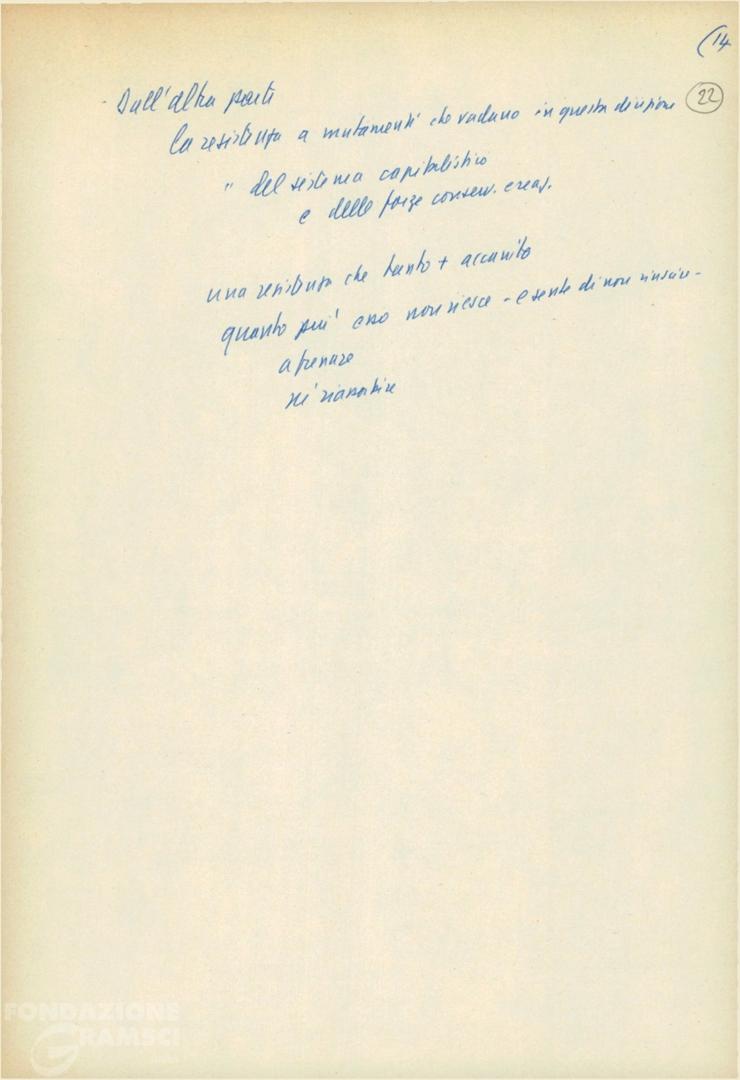 (14
22
- Dall'altra parte
la resistenza a mutamenti che vadano in questa direzione
" del sistema capitalistico
e delle forze conserv. e reaz.
una resistenza che tanto + accanita
quanto più esso non riesce - e sente di non riuscire -
a frenare
né riassorbire
FONDAZIONE
GRAMSCI